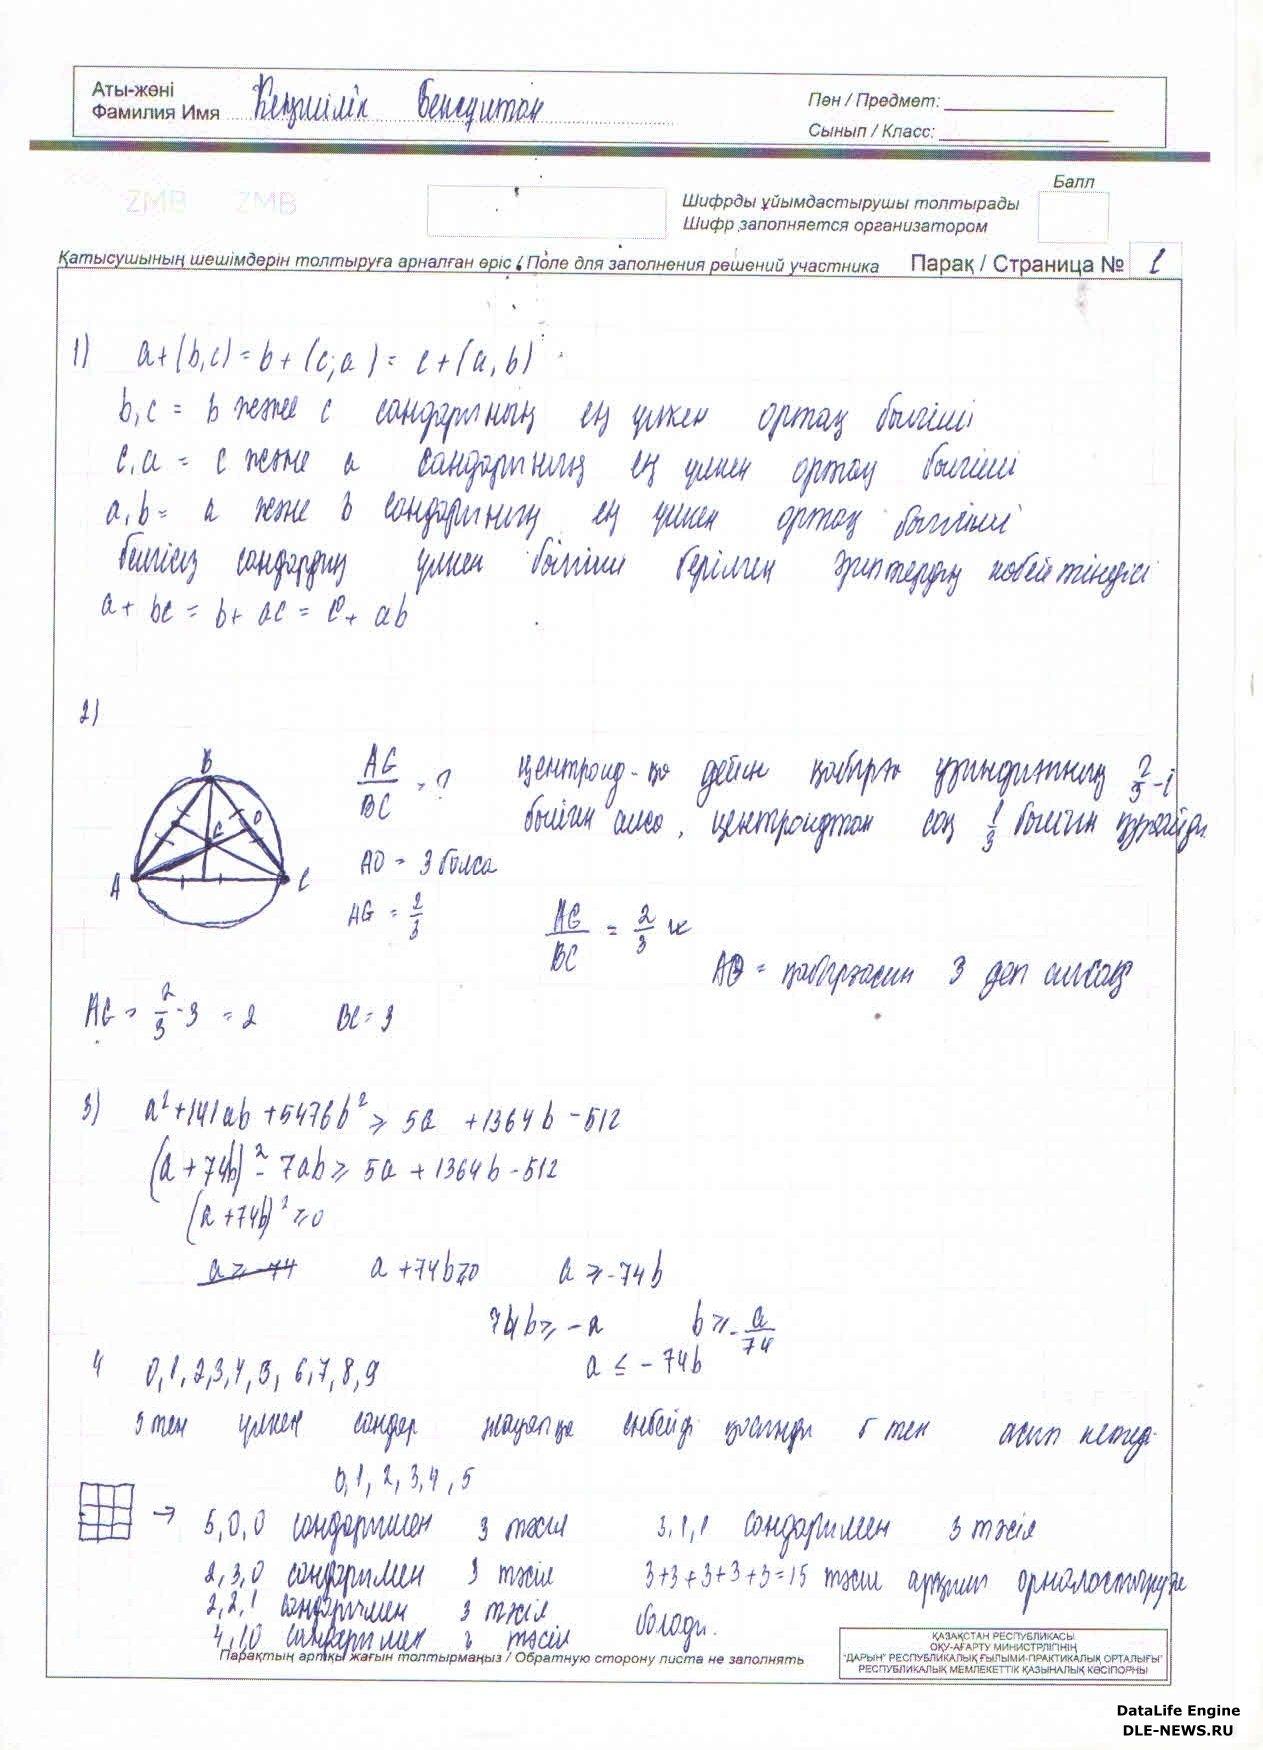 Аты-жөні
Фамилия Имя Кеңшілік Бексултан
Пән / Предмет:
Сынып / Класс:
ZMB ZMB
Балл
Шифрды ұйымдастырушы толтырады
Шифр заполняется организатором
Қатысушының шешімдерін толтыруға арналған өріс / Поле для заполнения решений участника Парақ / Страница № 1
1) a+(b,c)=b+(c,a)=c+(a,b)
b,c = b және c сандарының ең үлкен ортақ бөлгіші
c,a = c және a сандарының ең үлкен ортақ бөлгіші
a,b = a және b сандарының ең үлкен ортақ бөлгіші
белгісіз сандардың үлкен бөлгіші берілген әріптердің көбейтіндісі
a+ bc = b+ ac = c+ ab
2)
B
G O
A C
AG/BC = ?
центроид-қа дейін қабырға ұзындығының 2/3-і
бөлігін алса, центроидтан соң 1/3 бөлігін құрайды
AO = 3 болса
AG = 2/3
AG/BC = 2/3 ж
AO = қабырғасын 3 деп алсақ
AG = 2/3 · 3 = 2 BC = 3
3) a²+141ab+5476b² ≥ 5a +1364b -512
(a+74b)² - 7ab ≥ 5a +1364b -512
(a+74b)² ≥ 0
a ≥ -74 a+74b≥0 a ≥ -74b
74b ≥ -a b ≥ -a/74
a ≤ -74b
4 0,1,2,3,4,5,6,7,8,9
5 тен үлкен сандар жауапқа енбейді қосынды 5 тен асып кетеді
0,1,2,3,4,5
→ 5,0,0 сандарымен 3 тәсіл 3,1,1 сандарымен 3 тәсіл
2,3,0 сандарымен 3 тәсіл 3+3+3+3+3=15 тәсіл арқылы орналастыруға
2,2,1 сандарымен 3 тәсіл болады.
4,1,0 сандарымен 3 тәсіл
Парақтың артқы жағын толтырмаңыз / Обратную сторону листа не заполнять
ҚАЗАҚСТАН РЕСПУБЛИКАСЫ
ОҚУ-АҒАРТУ МИНИСТРЛІГІНІҢ
"ДАРЫН" РЕСПУБЛИКАЛЫҚ ҒЫЛЫМИ-ПРАКТИКАЛЫҚ ОРТАЛЫҒЫ"
РЕСПУБЛИКАЛЫҚ МЕМЛЕКЕТТІК ҚАЗЫНАЛЫҚ КӘСІПОРНЫ
DataLife Engine
DLE-NEWS.RU